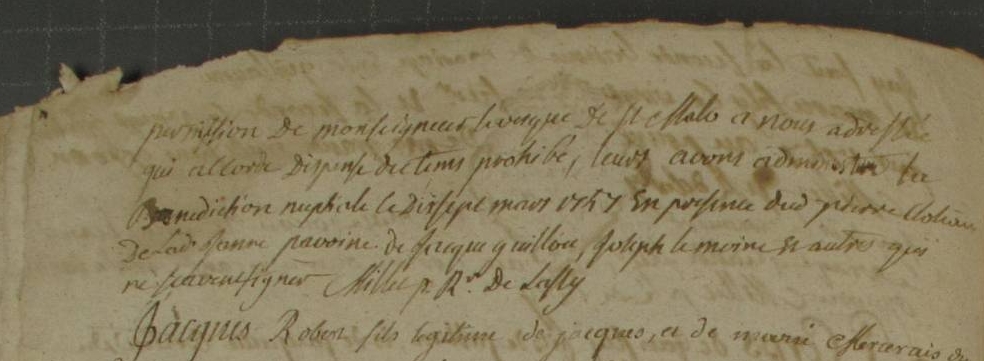 permission De monseigneur leveque De st Malo a nous adressée
qui accorde Dispense du tems prohibé, leurs avons administré la
Benediction nuptiale le Dissept mars 1757 En presence dud pierre
De lad. Janne pavoine de Jacque guillou, Joseph le moine Et autres qui
ne sçavent signer Millet p. Rr. De Lassy
Jacques Robert fils legitime de jacques, et de marie Mercerais